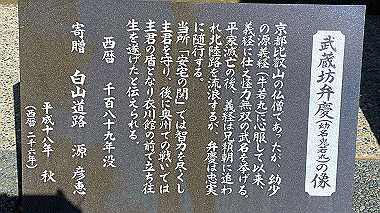 武蔵坊弁慶(幼名鬼若丸)の像
京都比叡山の仏僧であったが、幼少
の源義経(牛若丸)に心服して以来、
義経に仕え怪力無双の武名を挙げる。
平家滅亡の後、義経は兄頼朝に追わ
れ北陸路を流浪するが、弁慶は忠実
に随行する。
当所「安宅の関」では智力を尽くし
主君を守り、後に奥州での戦いでは
主君の盾となり衣川館の前で立ち往
生を遂げたと伝えられる。
西暦 千百八十九年没
寄贈 白山道路 源 彦恵
平成十八年 秋
(西暦 二千六年)